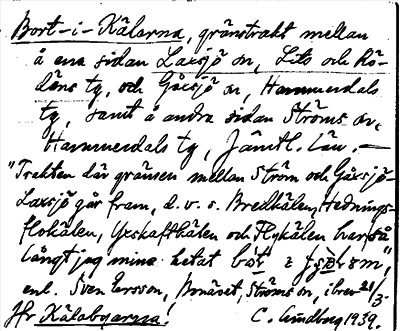 Bort-i-Kälarna, gränstrakt mellan
å ena sidan Laxsjö sn, Lits och Rö-
döns tg, och Gåxsjö sn, Hammerdals
tg, samt å andra sidan Ströms sn,
Hammerdals tg, Jämtl. län. —
"Trakten där gränsen mellan Ström och Gåxsjö-
Laxsjö går fram, d.v.s. Bredkälen, Hednings-
flokälen, Yxskaftkälen och Flykälen har så
långt jag minns hetat
enl. Sven Larsson, Bonäset, Ströms sn, i brev 21/3.
Jfr Kälabyarna! C. Lindberg 1939.